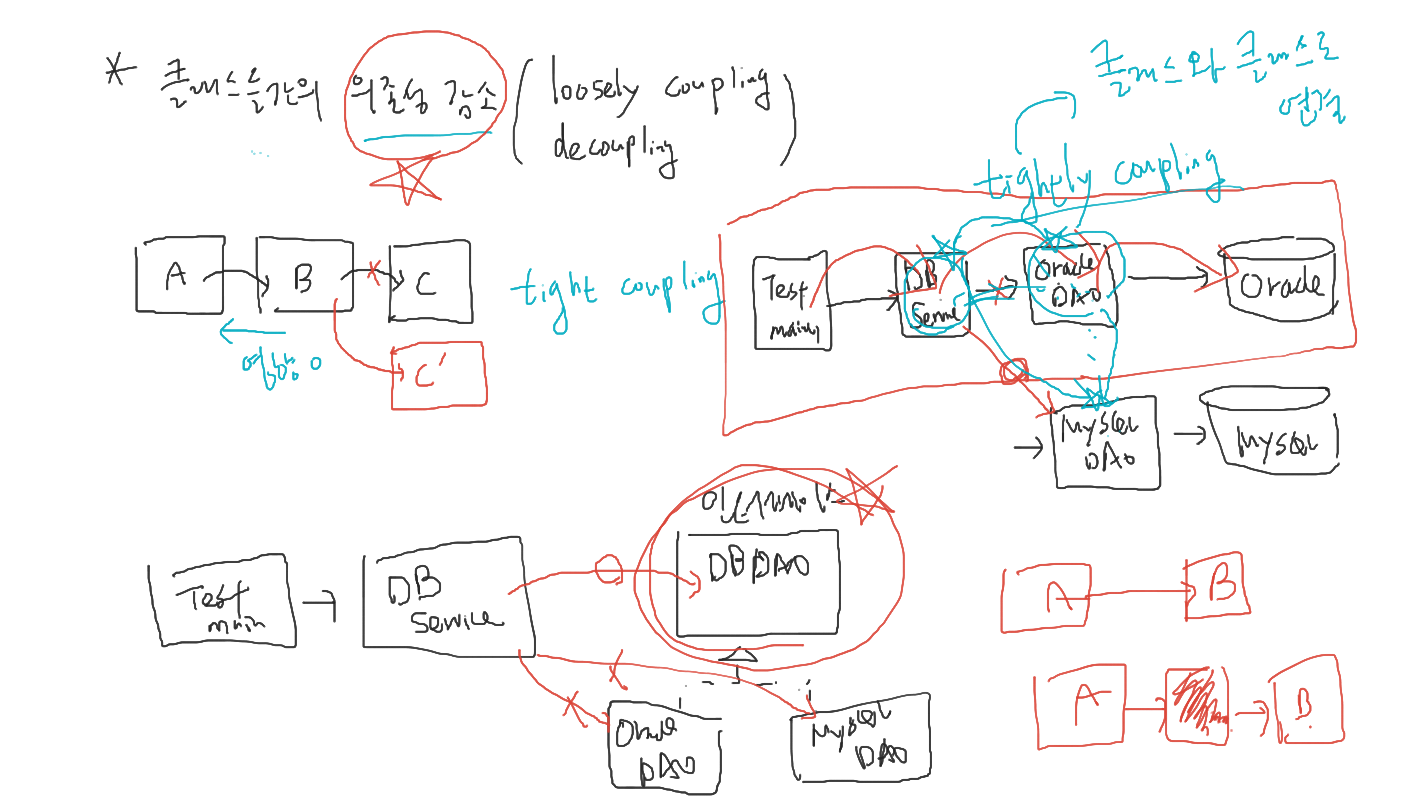 * 클래스들간의 의존성 감소 ( loosely coupling
decoupling )
클래스와 클래스로
연결
tightly coupling
A
B
C
C'
tight coupling
Test
main
DB
Service
Oracle
DAO
Oracle
MySQL
DAO
MySQL
인터페이스
DB DAO
Test
main
DB
Service
Oracle
DAO
MySQL
DAO
A
B
A
B